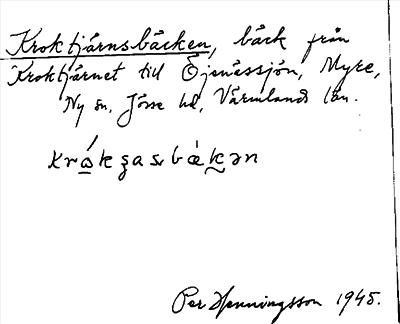 Kroktjärnsbäcken, bäck från
Kroktjärnet till Öjenässjön, Myre,
Ny sn. Jösse hd, Värmlands län.
krå̀kʒasbäkən
Per Henningsson 1945.